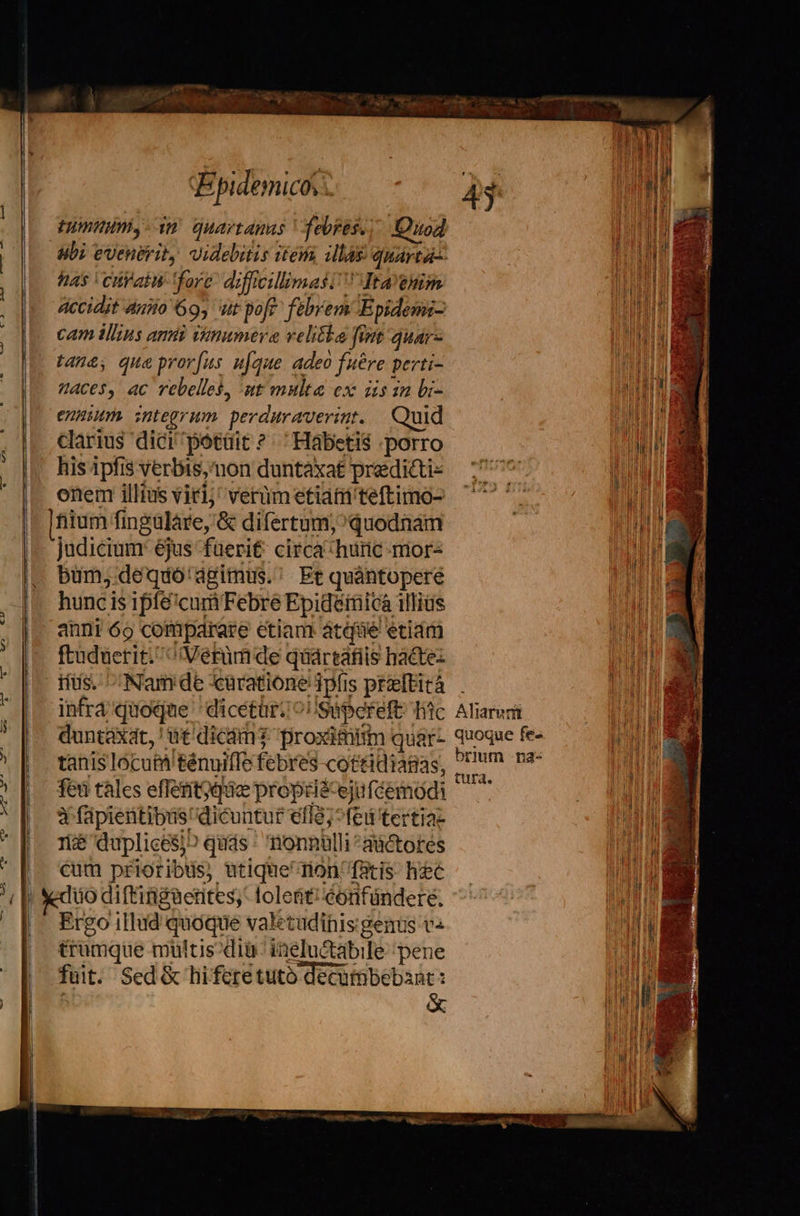 Epidemicos.
45
tumnum, in quartanas febres. Quod
ubi evenerit, videbitis item, illas quarta-
nas curatu fore difficillimas. Ita enim
accidit anno 69, ut post febrem Epidemi-
cam illius anni innumeræ relictæ sint quar-
tanæ, quæ prorsus usque adeò fuêre perti-
naces, ac rebelles, ut multæ ex iis in bi-
ennium integrum perduraverint. Quid
clarius dici potuit? Habetis porro
his ipsis verbis, non duntaxat prædicti-
onem illius viri, verùm etiam testimo-
nium singulare, & disertum, quodnam
judicium ejus fuerit circa hunc mor-
bum, de quo agimus. Et quàntoperè
hunc is ipse cum Febre Epidemicâ illius
anni 69 comparare etiam atque etiam
studuerit. Verùm de quartanis hacte-
nus. Nam de curatione ipsis præstitâ
infra quoque dicetur. Superest hîc
duntaxat, ut dicam proximùm quar-
tanis locum tenuisse febres cottidianas,
seu tales essent, quæ propriè ejuscemodi
à sapientibus dicuntur esse, seu tertia-
næ duplices, quas nonnulli auctores
cum prioribus, utique non satis hæc
duo distinguentes, solent confundere.
Ergo illud quoque valetudinis genus u-
trumque multis diu ineluctabile pene
fuit. Sed & hi fere tutò decumbebant:
&
Aliarum
quoque fe-
brium na-
tura.